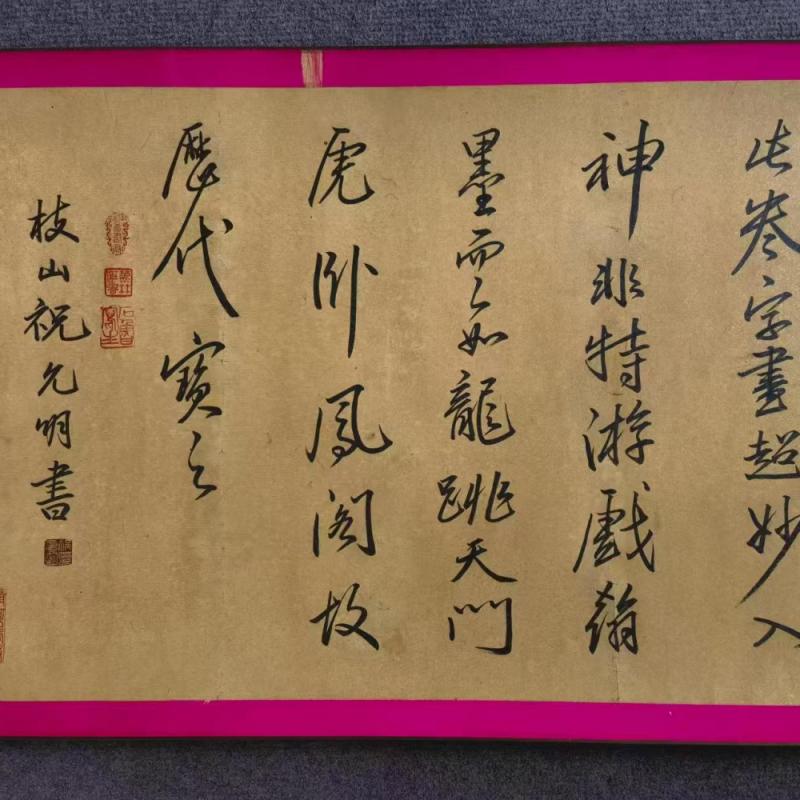 此卷字畫超妙入
神非特游戲翰
墨而已如龍跳天門
虎卧鳳閣故
歷代寶之
枝山祝允明書